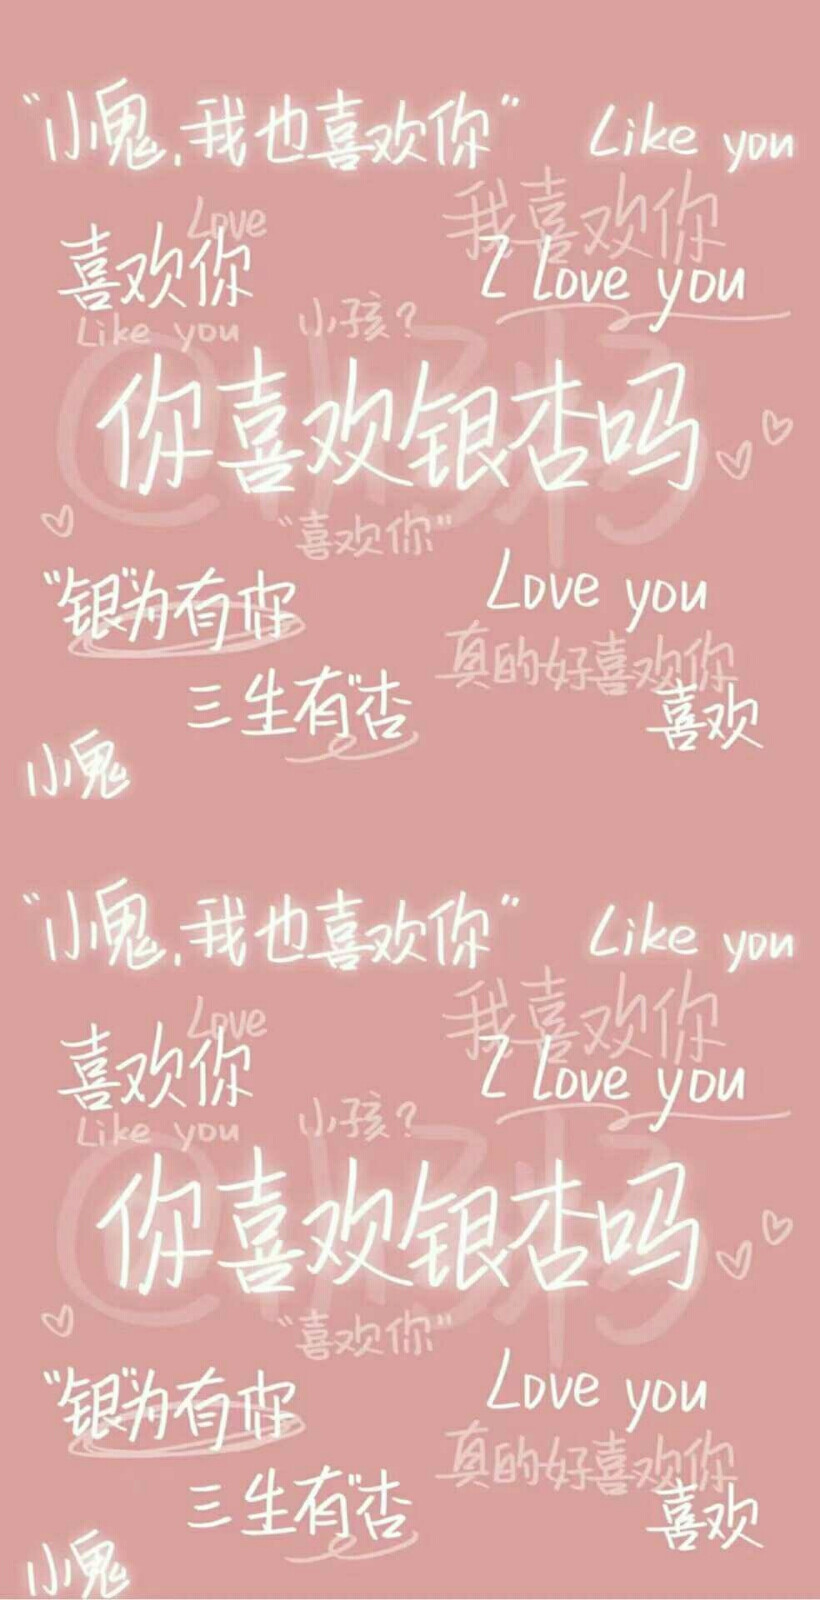 “小鬼,我也喜欢你”
Like you
Love
我喜欢你
喜欢你
I Love you
Like you
小孩?
你喜欢银杏吗
“喜欢你”
“银”为有你
Love you
真的好喜欢你
三生有“杏
喜欢
小鬼
“小鬼,我也喜欢你”
Like you
Love
我喜欢你
喜欢你
I Love you
Like you
小孩?
你喜欢银杏吗
“喜欢你”
“银”为有你
Love you
真的好喜欢你
三生有“杏
喜欢
小鬼